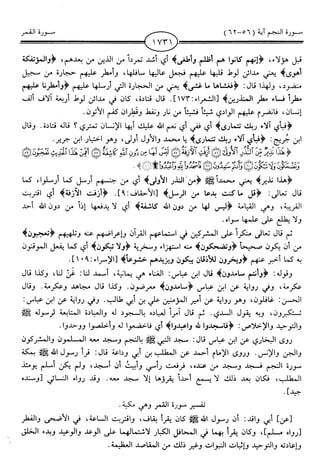 سورة النجم آية (٥٦-٦٢) سورة القمر
١٧٣١
قبل هؤلاء، ﴿إنهم كانوا هم أظلم وأطغى﴾ أي أشد تمرداً من الذين من بعدهم، ﴿والمؤتفكة
أهوى﴾ يعني مدائن لوط قلبها عليهم فجعل عاليها سافلها، وأمطر عليهم حجارة من سجيل
منضود، ولهذا قال: ﴿فغشاها ما غشى﴾ يعني من الحجارة التي أرسلها عليهم ﴿وأمطرنا عليهم
مطراً فساء مطر المنذرين﴾ [الشعراء: ١٧٣]. قال قتادة، كان في مدائن لوط أربعة آلاف ألف
إنسان، فانضرم عليهم الوادي شيئاً من نار ونفط وقطران كفم الأتون.
﴿فبأي آلاء ربك تتمارى﴾ أي ففي أي نعم الله عليك أيها الإنسان تمتري؟ قاله قتادة. وقال
ابن جُريج: ﴿فبأي آلاء ربك تتمارى﴾ يا محمد والأول أولى، وهو اختيار ابن جرير.
﴿هذا نذير﴾ يعني محمداً ﷺ ﴿من النذر الأولى﴾ أي من جنسهم أرسل كما أرسلوا، كما
قال تعالى: ﴿قل ما كنت بدعا من الرسل﴾ [الأحقاف: ٩]. ﴿أزفت الآزفة﴾ أي اقتربت
القريبة، وهي القيامة ﴿ليس لها من دون الله كاشفة﴾ أي لا يدفعها إذاً من دون الله أحد
ولا يطلع على علمها سواه.
ثم قال تعالى منكراً على المشركين في استماعهم القرآن وإعراضهم عنه وتلهيهم ﴿تعجبون﴾
من أن يكون صحيحاً ﴿وتضحكون﴾ منه استهزاء وسخرية ﴿ولا تبكون﴾ أي كما يفعل الموقنون
به كما أخبر عنهم ﴿ويخرون للأذقان يبكون ويزيدهم خشوعاً﴾ [الإسراء: ١٠٩].
وقوله: ﴿وأنتم سامدون﴾ قال ابن عباس: الغناء هي يمانية، أسمد لنا: غَنِّ لنا، وكذا قال
عكرمة، وفي رواية عن ابن عباس ﴿سامدون﴾ معرضون. وكذا قال مجاهد وعكرمة. وقال
الحسن: غافلون، وهو رواية عن أمير المؤمنين علي بن أبي طالب. وفي رواية عن ابن عباس:
تستكبرون، وبه يقول السدي. ثم قال آمراً لعباده بالسجود له والعبادة المتابعة لرسوله ﷺ
والتوحيد والإخلاص: ﴿فاسجدوا لله واعبدوا﴾ أي فاخضعوا له وأخلصوا ووحدوا.
روى البخاري عن ابن عباس قال: سجد النبي ﷺ بالنجم وسجد معه المسلمون والمشركون
والجن والإنس. وروى الإمام أحمد عن المطلب بن أبي وداعة قال: قرأ رسول الله ﷺ بمكة
سورة النجم فسجد وسجد من عنده، فرفعت رأسي وأبيت أن أسجد، ولم يكن أسلم يومئذ
المطلب، فكان بعد ذلك لا يسمع أحداً يقرؤها إلا سجد معه. وقد رواه النسائي [وسنده
جيد].
تفسير سورة القمر وهي مكية.
[عن] أبي واقد: أن رسول الله ﷺ كان يقرأ بقاف، واقتربت الساعة، في الأضحى والفطر
[رواه مسلم]، وكان يقرأ بهما في المحافل الكبار لاشتمالهما على الوعد والوعيد وبدء الخلق
وإعادته والتوحيد وإثبات النبوات وغير ذلك من المقاصد العظيمة.